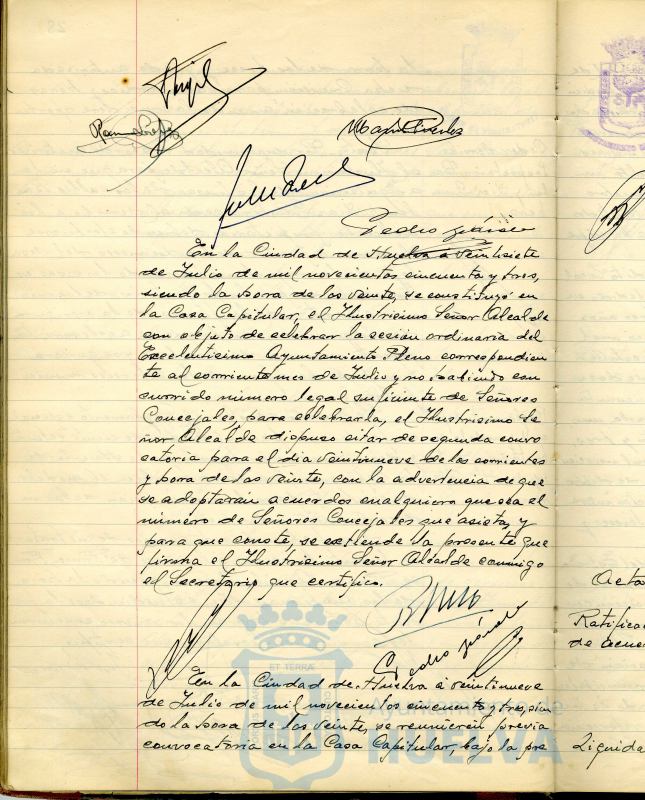 Pedro
En la Ciudad de Huelva a veintisiete
de Julio de mil novecientos cincuenta y tres,
siendo la hora de las veinte, se constituyó en
la Casa Capitular, el Ilustrisimo Señor Alcalde
con objeto de celebrar la sesión ordinaria del
Excelentisimo Ayuntamiento Pleno correspondien
te al corriente mes de Julio y no habiendo con
currido número legal suficiente de Señores
Concejales, para celebrarla, el Ilustrisimo Se
ñor Alcalde dispuso citar de segunda convo
catoria para el dia veintinueve de los corrientes
y hora de las veinte, con la advertencia de que
se adoptarán acuerdos cualquiera que sea el
número de Señores Concejales que asista, y
para que conste, se extiende la presente que
firma el Ilustrisimo Señor Alcalde conmigo
el Secretario que certifico.
Pedro
En la Ciudad de Huelva á veintinueve
de Julio de mil novecientos cincuenta y tres, sien
do la hora de las veinte, se reunieron previa
convocatoria en la Casa Capitular, bajo la pre
ET TERRÆ
HUELVA
Acta
Ratifica
de acue
Liquida